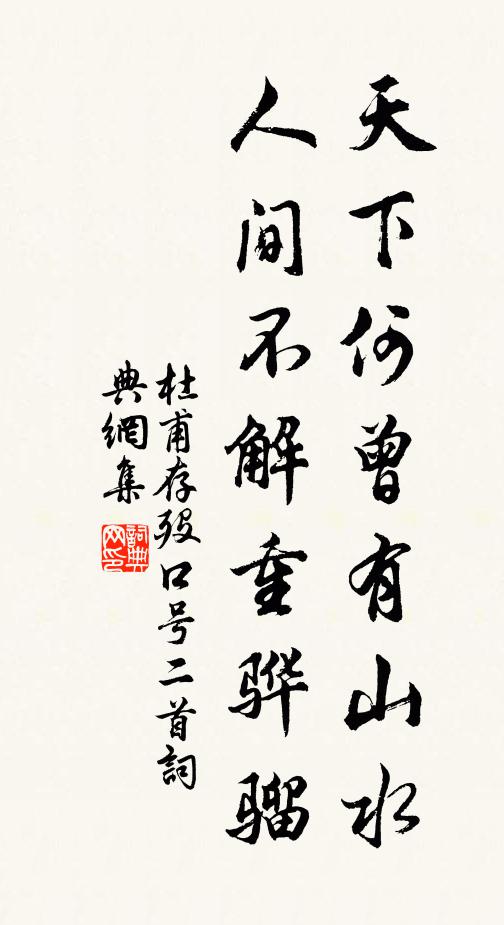 天下何曾有山水
人间不解重骅骝
杜甫存殁口号二首詞
典網集
詞典
网印